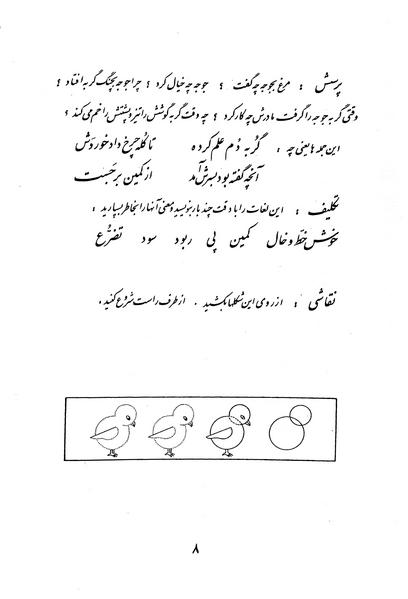 پرسش : مرغ بجوجه چه گفت ؟ جوجه چه خیال کرد ؟ چرا جوجه بچنگ گربه افتاد ؟
وقتی گربه جوجه را گرفت مادرش چه کار کرد ؟ چه وقت گربه گوشش را تیز و پشتش را خم می‌کند ؟
این جمله‌ها یعنی چه : گُربه دُم علم کرده تا کلّه چرخ داد خوردش
آنچه گفته بود بسرش آمد از کمین برجست
تکلیف : این لغات را با دقت چند بار بنویسید و معنی آنها را بخاطر بسپارید :
خوش خط و خال کمین پی ربود سود تضرُّع
نقاشی : از روی این شکلها بکشید . از طرف راست شروع کنید .
۸